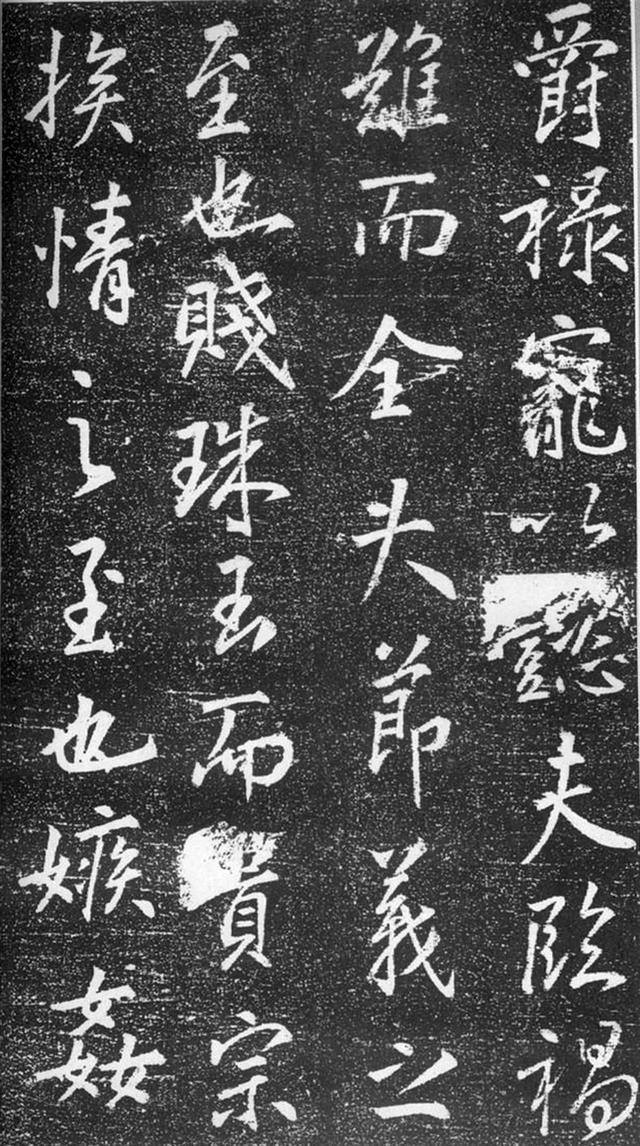 爵禄寵以懿夫臨禍
難而全大節義之
至也賤珠玉而貴宗
族情之至也嫉姦